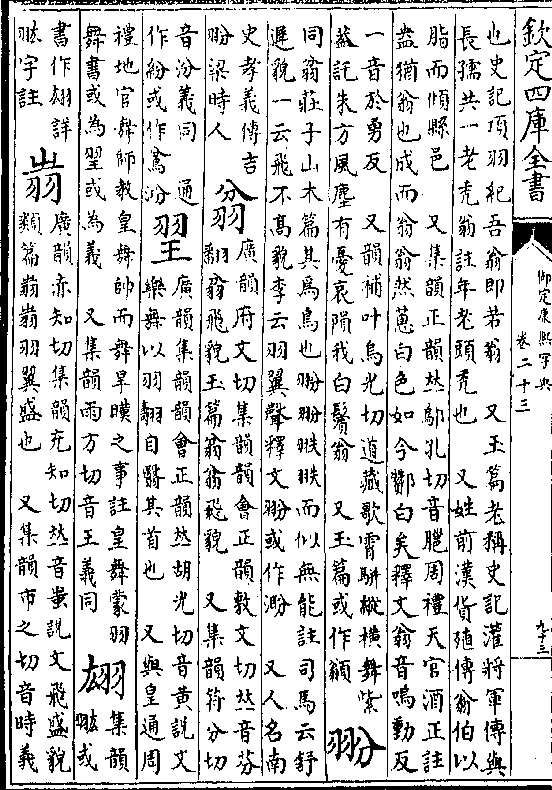 欽定四庫全書
御定康熙字典
卷二十三
九十三
也史記項羽紀吾翁即若翁 又玉篇老稱史記灌將軍傳與
長孺共一老禿翁註年老頭禿也 又姓前漢貨殖傳翁伯以
脂而傾縣邑 又集韻正韻𠀤鄔孔切音腲周禮天官酒正註
盎猶翁也成而翁翁然蔥白色如今酇白矣釋文翁音嗚動反
一音於勇反 又韻補叶烏光切道藏歌霄軿縱橫舞紫
蓋託朱方風塵有憂哀隕我白鬢翁 又玉篇或作䪺
翂
同翁莊子山木篇其爲鳥也翂翂翐翐而似無能註司馬云舒
遲貌一云飛不高貌李云羽翼聲釋文翂或作㳷 又人名南
史孝義傳吉
翂梁時人
廣韻府文切集韻韻會正韻敷文切𠀤音芬
翻翁飛貌玉篇翁翁飛貌 又集韻符分切
音汾義同 通
作紛或作鳻汾
䍿
廣韻集韻韻會正韻𠀤胡光切音黃說文
樂舞以羽翿自翳其首也 又與皇通周
禮地官舞師教皇舞帥而舞旱暵之事註皇舞蒙羽
舞書或為䍿或為義 又集韻雨方切音王義同
翃
集韻
翃或
書作翃詳
翃字註
廣韻赤知切集韻充知切𠀤音蚩說文飛盛貌
類篇翤翤羽翼盛也 又集韻市之切音時義